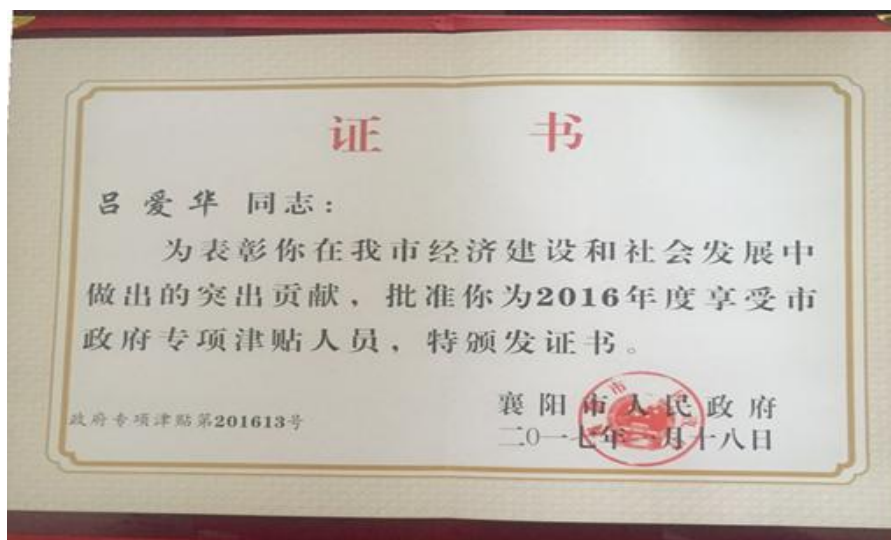 证 书
吕爱华 同志：
为表彰你在我市经济建设和社会发展中
做出的突出贡献，批准你为2016年度享受市
政府专项津贴人员，特颁发证书。
政府专项津贴第201613号
襄阳市人民政府
二0一七年一月十八日